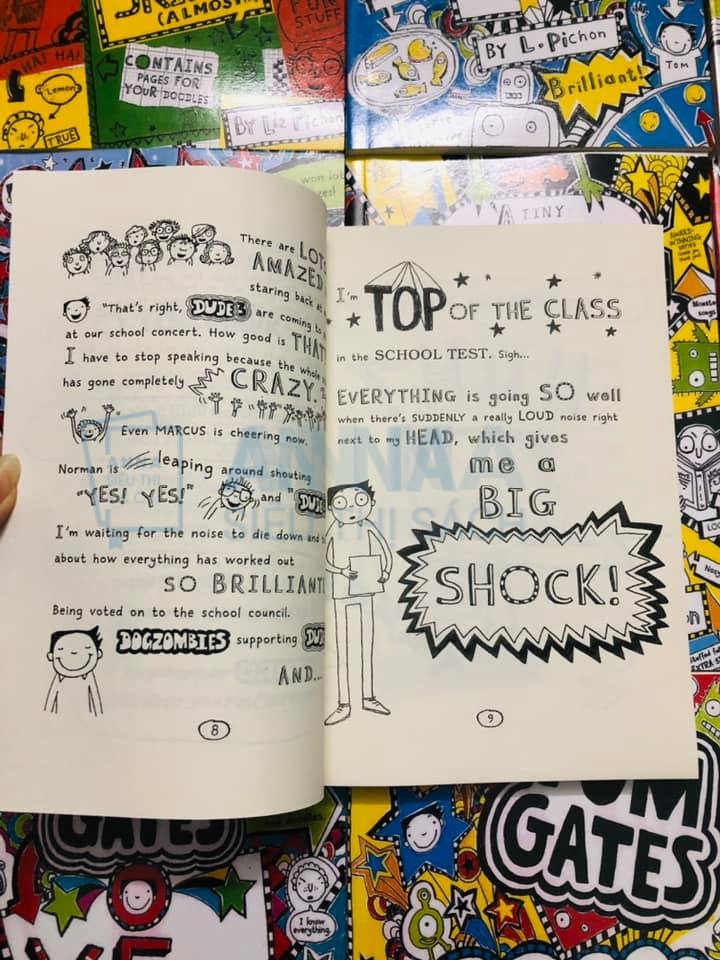 HAI HAI
Lemon
TRUE
(ALMOST)
CONTAINS
PAGES FOR
YOUR DOODLES
FUN
STUFF
By Liz Pichon
By L. Pichon
Brilliant!
TOM
won lot
A TINY
AWARD-
WINNING
series
There are LOTS
AMAZED
staring back at
"That's right, DUDE3 are coming to
at our school concert. How good is THAT
I have to stop speaking because the whole
has gone completely CRAZY.
Even MARCUS is cheering now.
Norman is leaping around shouting
"YES! YES!" and "DUDE
I'm waiting for the noise to die down and
about how everything has worked out
SO BRILLIANT
Being voted on to the school council.
DOGZOMBIES supporting DUDE
AND...
8
I'm TOP OF THE CLASS
in the SCHOOL TEST. Sigh...
EVERYTHING is going SO well
when there's SUDDENLY a really LOUD noise right
next to my HEAD, which gives
me a
BIG
SHOCK!
9
ANNAA
SIÊU THỊ SÁCH
Monster
songs
EXTRA
GATES
I know
everything.
TOM
GATES